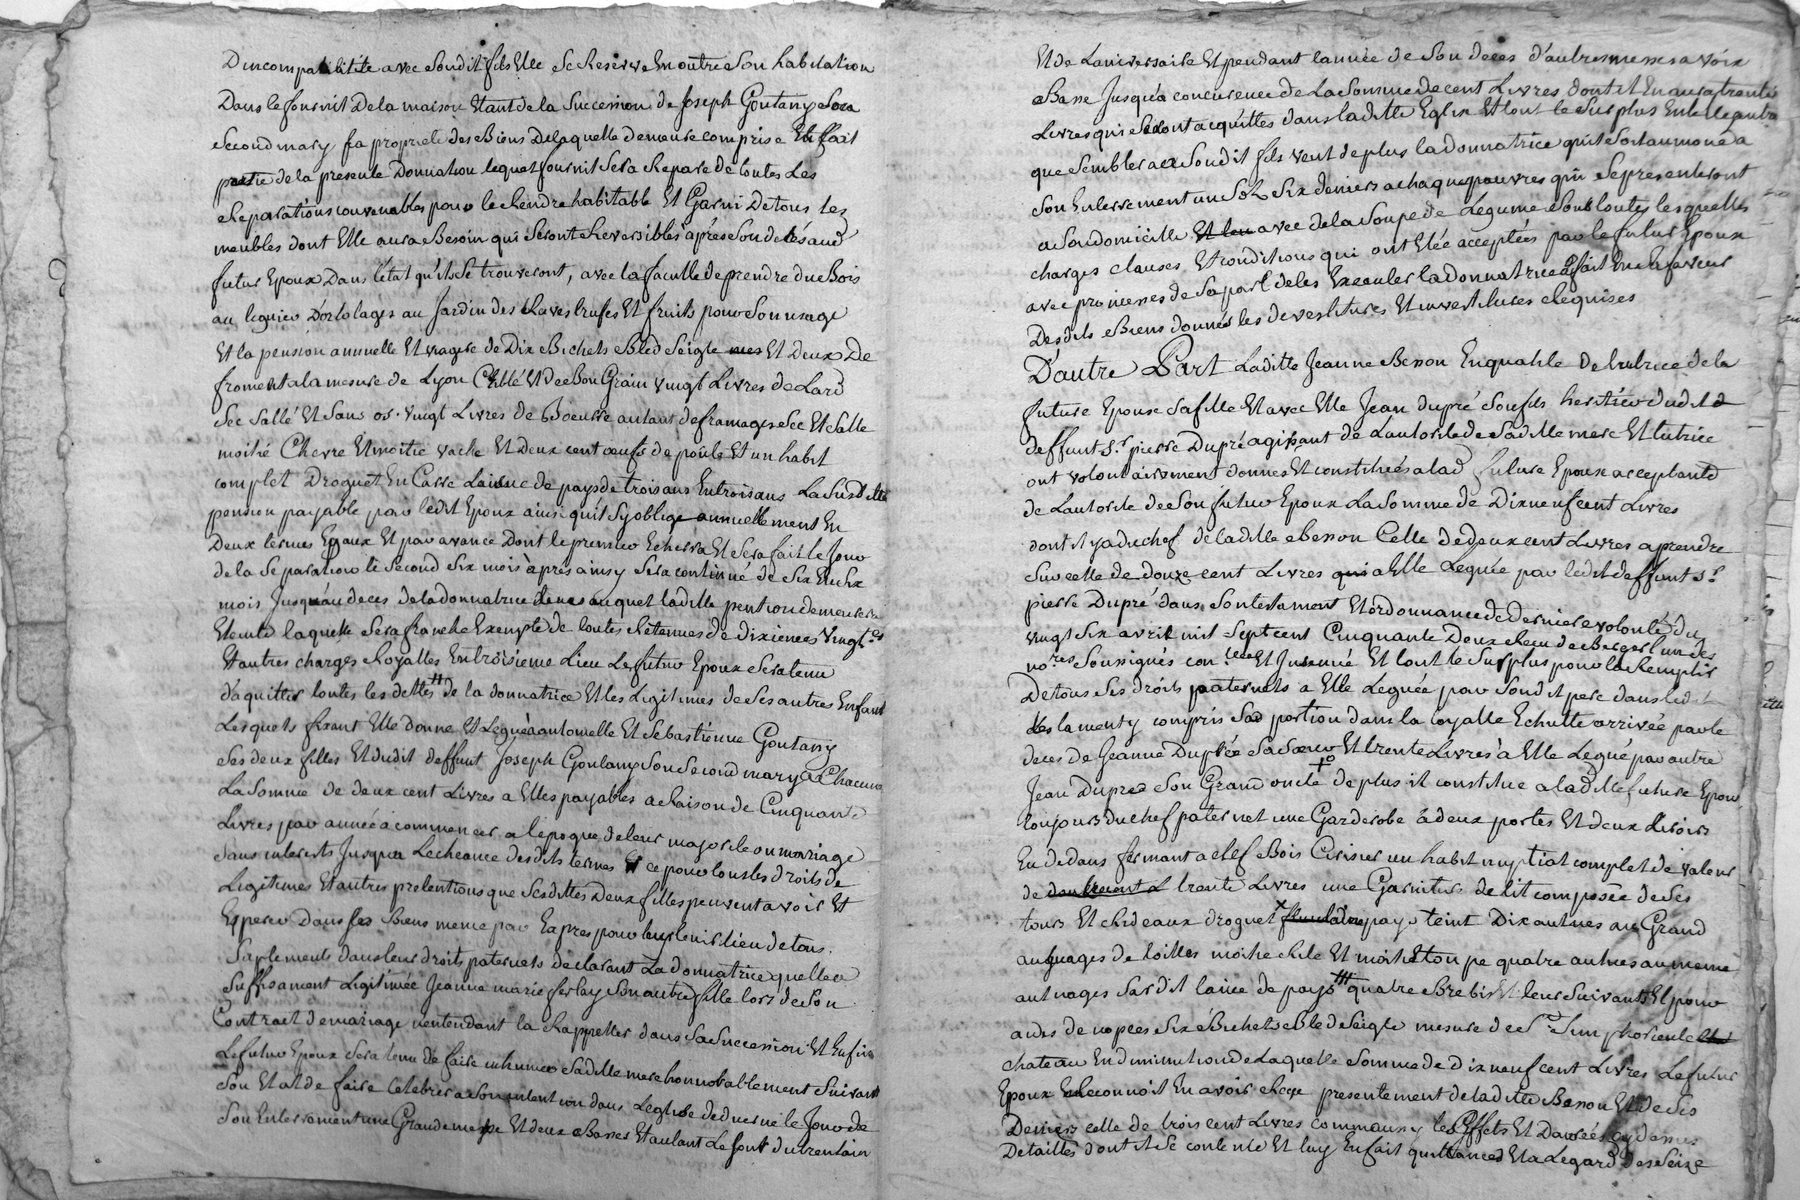 D'incompatibilité avec Sondit fils Elle Se Reserve En outre Son habitation
Dans le fournit De la maison Etant de la Succession de Joseph Goutany Son
Second mary fa proprieté des Biens De laquelle demeure comprise Et fait
partie de la presente Donnation lequel fournit Sera Reparé de toutes Les
Reparations convenables pour le Rendre habitable Et Garni De tous les
meubles dont Elle aura Besoin qui Seront Reversibles après Son decés aud
futur Epoux Dans l'état qu'ils Se trouveront, avec la faculté de prendre du Bois
au legnier D'ortolages au Jardin des Raves trufes Et fruits pour Son usage
Et la pension annuelle Et viagere de Dix Bichets Bled Seigle Et Deux De
froment a la mesure de Lyon Criblé Et de Bon Grain vingt Livres de Lard
Sec Sallé Et Sans os. vingt Livres de Boeurre autant de fromages Sec Et Sallé
moitié Chevre Et moitié vache Et deux cent oeufs de poule Et un habit
complet Droguet En Carre Laine de pays de trois ans En trois ans La Susditte
pension payable par ledit Epoux ainsi qu'il S'y oblige annuellement En
Deux termes Egaux Et par avance Dont le premier Echerra Et Sera fait le Jour
de la Separation le Second Six mois après ainsy Sera continué de Six En Six
mois Jusqu'au deces de la donnatrice auquel laditte pention demeurera
Eteinte laquelle Sera franche Exempte de toutes Retenues de dixiemes Vingt.es
Et autres charges Royalles En troisieme Lieu Le futur Epoux Sera tenu
d'aquitter toutes les dettes de la donnatrice Et les Legitimes de Ses autres Enfans
Lesquels fixant Elle donne Et Legue a antoinette Et Sebastienne Goutany
Ses deux filles Et dudit deffunt Joseph Goutany Son Second mary a Chacune
La Somme de deux cent Livres a Elles payables a Raison de Cinquante
Livres par année à commencer a l'epoque de leur majorité ou mariage
Sans interets Jusqu'a Lecheance desdits termes ce pour tous les droits de
Legitimes Et autres pretentions que Sesdittes Deux filles peuvent avoir Et
Esperer Dans Ses Biens meme par Eapres pour leur tenir lieu de tous
Suplements dans leur droits paternels declarant La donnatrice quelle a
Suffisament Legitimée Jeanne marie ferlay Son autre fille lors de Son
Contrat de mariage n'entendant la Rappeller dans Sa Succession Et Enfin
Le futur Epoux Sera tenu de faire inhumer Saditte mere honnorablement Suivant
Son Etat de faire Celebrer a Son intention dans Leglise de le Jour de
Son Enterrement une Grande messe Et deux Basses Et autant Le Jour du trentain
Et de Laniversaire Et pendant l'année de Son deces d'autres messes a voix
Basse Jusqu'a concurence de La Somme de cent Livres dont il En aura trente
Livres qui Seront acquittés dans laditte Eglise Et tout le Surplus En telle autre
que Semblera a Sondit fils veut de plus la donnatrice qu'il Soit aumoné a
Son Enterrement un Sol Six deniers a chaque pauvres qui Se presenteront
a Son domicille avec de la Soupe de Legume Sous toutes lesquelles
charges clauses Et conditions qui ont Eté acceptées par le futur Epoux
avec promesses de Sa part de les Executer la donnatrice a fait En Sa faveur
Desdits Biens donnés les devestitures Et investitures Requises
D'autre Part Laditte Jeanne Benon En qualité De tutrice de la
future Epouse Sa fille Et avec Elle Jean dupré Son fils heritier dudit
deffunt S.r pierre Dupré agissant de L'autorité de Saditte mere Et tutrice
ont volontairement donnés Et constitués a lad future Epouse acceptante
de L'autorité de Son futur Epoux La Somme de Dix neuf cent Livres
dont il y a du chef de laditte Benon Celle de deux cent Livres a prendre
Sur celle de douze cent Livres a Elle Leguée par ledit deffunt S.r
pierre Dupré dans Son testament Et ordonnance de derniere volonté du
vingt Six avril mil Sept cent Cinquante Deux Receu de Berger l'un des
no.res Soussignés con.lée Et Insinué Et tout le Surplus pour la Remplir
De tous Ses droits paternels a Elle Leguée par Sondit pere dans ledit
testament y compris Sad portion dans la coyalle Echutte arrivée par le
deces de Jeanne Duprée Sa Soeur Et trente Livres à Elle Legué par autre
Jean Dupré Son Grand oncle de plus il constitue a laditte future Epouse
toujours du chef paternel une Garderobe à deux portes Et deux tiroirs
En dedans fermant a clef Bois Cerisier un habit nuptial complet de valeur
de trente Livres une Garniture de lit composée de Ses
tours Et Rideaux droguet pays teint Dix aulnes au Grand
aulnages de toilles moitié Rite Et moitié Etoupe quatre aulnes au meme
aulnages Sardit laine de pays quatre Brebis Et leur Suivants Et pour
aides de nopces Six Bichets Bled Seigle mesure de S.t Simphorien le
chateau En diminution de Laquelle Somme de Dix neuf cent Livres Le futur
Epoux Reconnoit En avoir Reçu presentement de laditte Benon Et de Ses
Deniers celle de trois cent Livres comme aussy les Effets Et Danrées cy dessus
Detaillés dont il Se contente Et luy En fait quittance Et a Legard des Seize